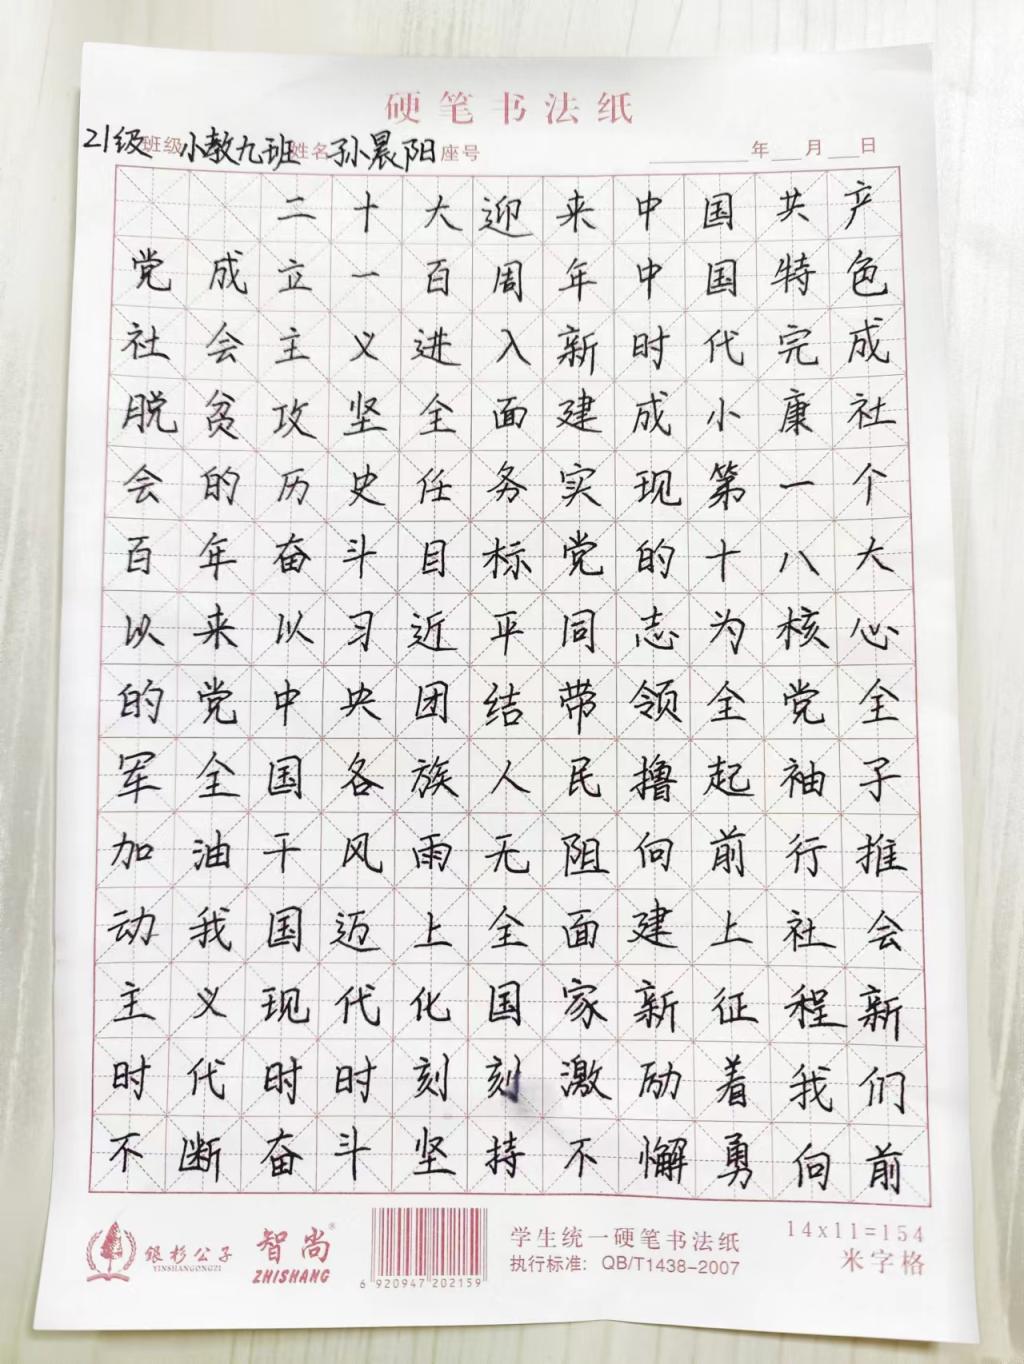 硬笔书法纸
21级班级小教九班姓名孙晨阳座号 年 月 日
二十大迎来中国共产
党成立一百周年中国特色
社会主义进入新时代完成
脱贫攻坚全面建成小康社
会的历史任务实现第一个
百年奋斗目标党的十八大
以来以习近平同志为核心
的党中央团结带领全党全
军全国各族人民撸起袖子
加油干风雨无阻向前行推
动我国迈上全面建上社会
主义现代化国家新征程新
时代时时刻刻激励着我们
不断奋斗坚持不懈勇向前
银杉公子
YINSHANGONGZI
智尚®
ZHISHANG
6 920947 202159
学生统一硬笔书法纸
执行标准：QB/T1438-2007
14x11=154
米字格